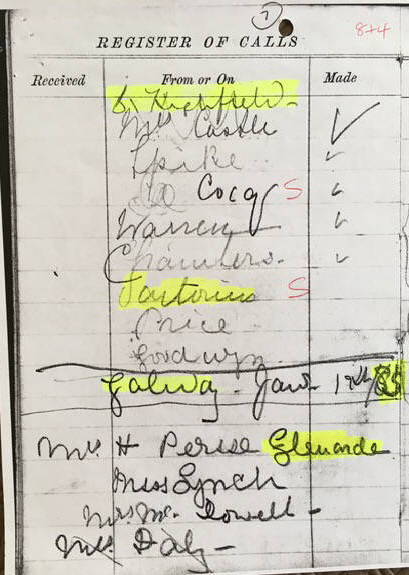 7
8+4
REGISTER OF CALLS
Received From or On Made
Mrs Castle
Spike
Cocq S
Warren
Chambers.
Sartorius S
Price
Goodwyn
Galway. Jan. 12th/85
Mrs. H Persse Glenarde
Miss Lynch
Mrs. Mc. Dowell -
Mrs. Daly -